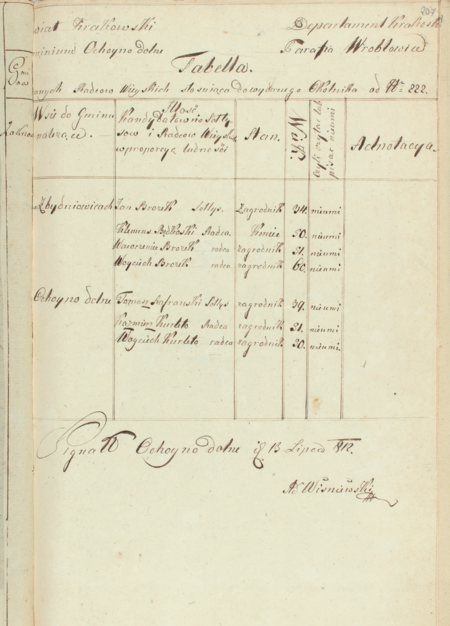 207
wiat Krakowski Departament Krakows
Gminna Ochoyno dolne Parafia Wroblowice
Tabella.
onych Radców Wieyskich stosuiąca do wydanego Okolnika od No. 222.
Wsiè do Gminu należące. Ilość Kandydatów na Sołtysow i Radcow Wieyskich w proporcyę ludności Stan. Wiek. czyli czytać lub pisać umieią Adnotacya.
Zbydniowicach Jan Brozek Sołtys. Zagrodnik 34. nieumi
Klemens Bętkoski Radca. Kmieć 50. nieumi
Wawrzeniec Brozek radca zagrodnik 51. nieumi.
Woyciech Brozek radca zagrodnik 60. nieumi.
Ochoyno dolne Tomasz Safranski Sołtys zagrodnik 34. nieumi.
Kazmierz Kurlito Radca zagrodnik 51. nieumi.
Woyciech Kurlito radca zagrodnik 50. nieumi.
Signatt Ochoyno dolne d. 13 Lipca 812.
Wisniewski